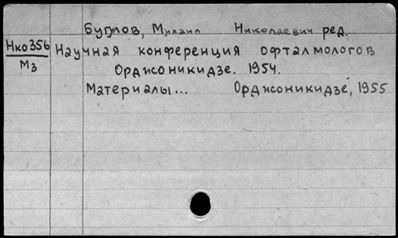 Буглов, Михаил Николаевич ред.
Нко356 Научная конференция офталмологов
М3 Орджоникидзе. 1954.
Материалы... Орджоникидзе, 1955